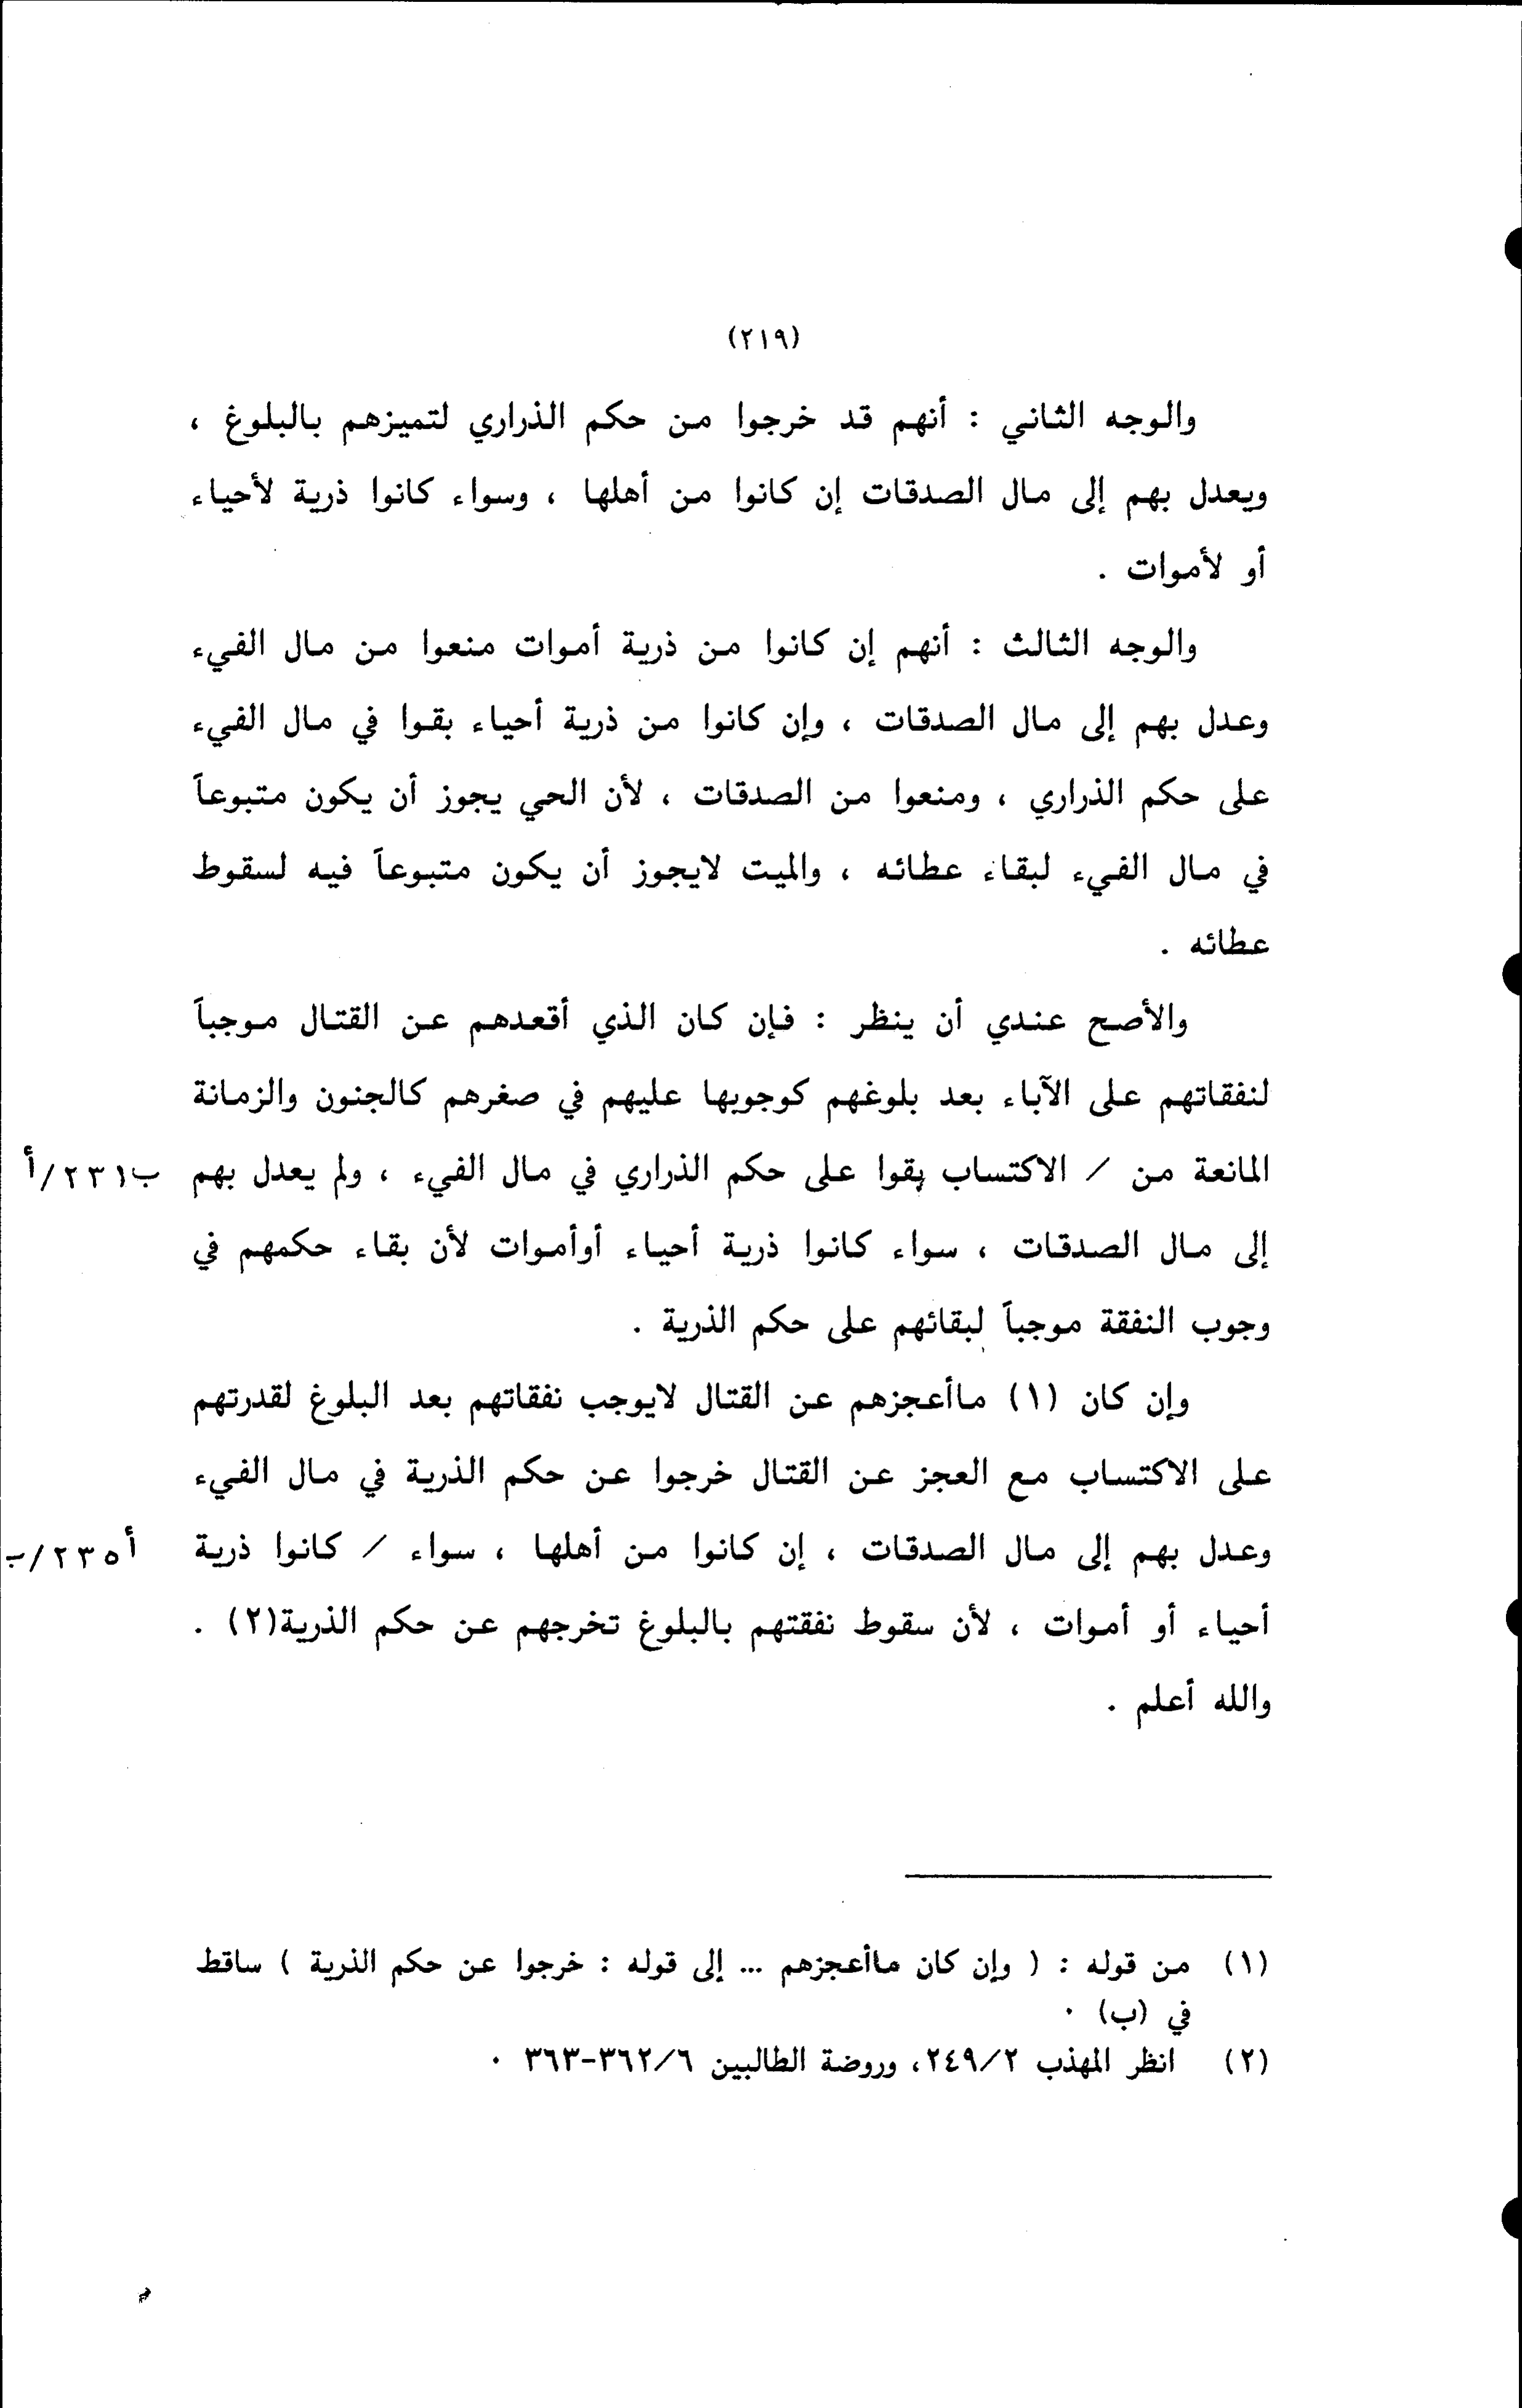 (٢١٩)
والوجه الثاني : أنهم قد خرجوا من حكم الذراري لتميزهم بالبلوغ ،
ويعدل بهم إلى مال الصدقات إن كانوا من أهلها ، وسواء كانوا ذرية لأحياء
أو لأموات .
والوجه الثالث : أنهم إن كانوا من ذرية أموات منعوا من مال الفيء
وعدل بهم إلى مال الصدقات ، وإن كانوا من ذرية أحياء بقوا في مال الفيء
على حكم الذراري ، ومنعوا من الصدقات ، لأن الحي يجوز أن يكون متبوعاً
في مال الفيء لبقاء عطائه ، والميت لايجوز أن يكون متبوعاً فيه لسقوط
عطائه .
والأصح عندي أن ينظر : فإن كان الذي أقعدهم عن القتال موجباً
لنفقاتهم على الآباء بعد بلوغهم كوجوبها عليهم في صغرهم كالجنون والزمانة
المانعة من / الاكتساب بقوا على حكم الذراري في مال الفيء ، ولم يعدل بهم ب٢٣١/أ
إلى مال الصدقات ، سواء كانوا ذرية أحياء أوأموات لأن بقاء حكمهم في
وجوب النفقة موجباً لبقائهم على حكم الذرية .
وإن كان (١) ماأعجزهم عن القتال لايوجب نفقاتهم بعد البلوغ لقدرتهم
على الاكتساب مع العجز عن القتال خرجوا عن حكم الذرية في مال الفيء
وعدل بهم إلى مال الصدقات ، إن كانوا من أهلها ، سواء / كانوا ذرية أ٢٣٥/ب
أحياء أو أموات ، لأن سقوط نفقتهم بالبلوغ تخرجهم عن حكم الذرية(٢) .
والله أعلم .
(١) من قوله : ( وإن كان ماأعجزهم ... إلى قوله : خرجوا عن حكم الذرية ) ساقط
في (ب) .
(٢) انظر المهذب ٢٤٩/٢، وروضة الطالبين ٣٦٢/٦-٣٦٣ .